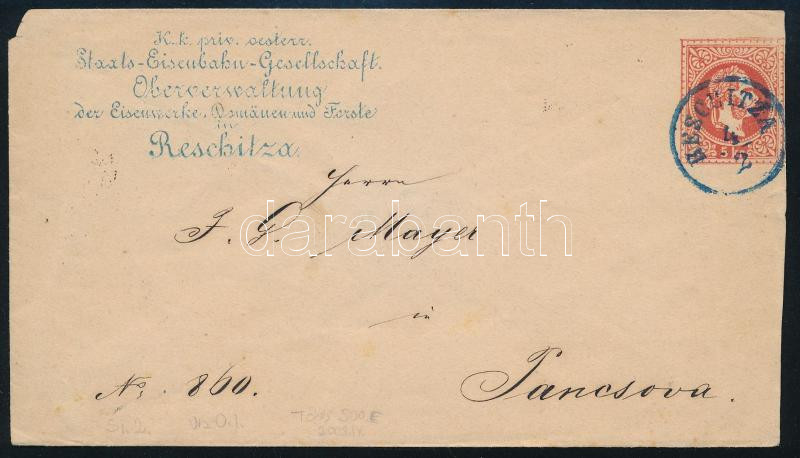 K. k. priv. oesterr.
Staats-Eisenbahn-Gesellschaft.
Oberverwaltung
der Eisenwerke, Domänen und Forste
in
Reschitza.
BRSSOVITZA
5
Herrn
F. G. Mayer
darabanth
in
No. 860.
Pancsova.